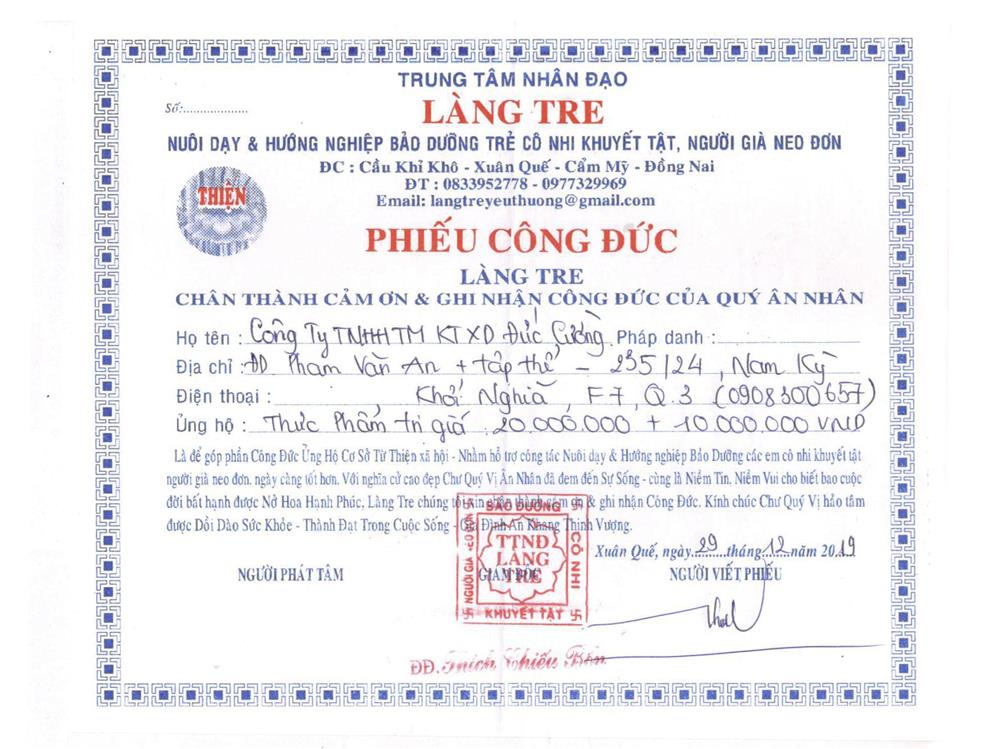 TRUNG TÂM NHÂN ĐẠO
Số:...................
LÀNG TRE
NUÔI DẠY & HƯỚNG NGHIỆP BẢO DƯỠNG TRẺ CÔ NHI KHUYẾT TẬT, NGƯỜI GIÀ NEO ĐƠN
ĐC : Cầu Khỉ Khô - Xuân Quế - Cẩm Mỹ - Đồng Nai
ĐT : 0833952778 - 0977329969
Email: langtreyeuthuong@gmail.com
THIỆN
PHIẾU CÔNG ĐỨC
LÀNG TRE
CHÂN THÀNH CẢM ƠN & GHI NHẬN CÔNG ĐỨC CỦA QUÝ ÂN NHÂN
Họ tên : Công Ty TNHHTM KTXD Đức Cường. Pháp danh :
Địa chỉ : ĐD Phạm Văn An + tập thể - 235/24, Nam Kỳ
Điện thoại : Khởi Nghĩa, F7, Q.3 (0908300657)
Ủng hộ : Thực Phẩm trị giá 20.000.000 + 10.000.000 VNĐ
Là để góp phần Công Đức Ủng Hộ Cơ Sở Từ Thiện xã hội - Nhằm hỗ trợ công tác Nuôi dạy & Hướng nghiệp Bảo Dưỡng các em cô nhi khuyết tật
người già neo đơn. ngày càng tốt hơn. Với nghĩa cử cao đẹp Chư Quý Vị Ân Nhân đã đem đến Sự Sống - cùng là Niềm Tin. Niềm Vui cho biết bao cuộc
đời bất hạnh được Nở Hoa Hạnh Phúc, Làng Tre chúng tôi xin chân thành cảm ơn & ghi nhận Công Đức. Kính chúc Chư Quý Vị hảo tâm
được Dồi Dào Sức Khỏe - Thành Đạt Trong Cuộc Sống - Gia Đình An Khang Thịnh Vượng.
Xuân Quế, ngày 29 tháng 12 năm 2019
NGƯỜI PHÁT TÂM GIÁM ĐỐC NGƯỜI VIẾT PHIẾU
BẢO DƯỠNG
NGƯỜI GIÀ NEO ĐƠN
CÔ NHI
TTNĐ
LÀNG
TRE
KHUYẾT TẬT
ĐĐ. Thích Chiếu Bổn